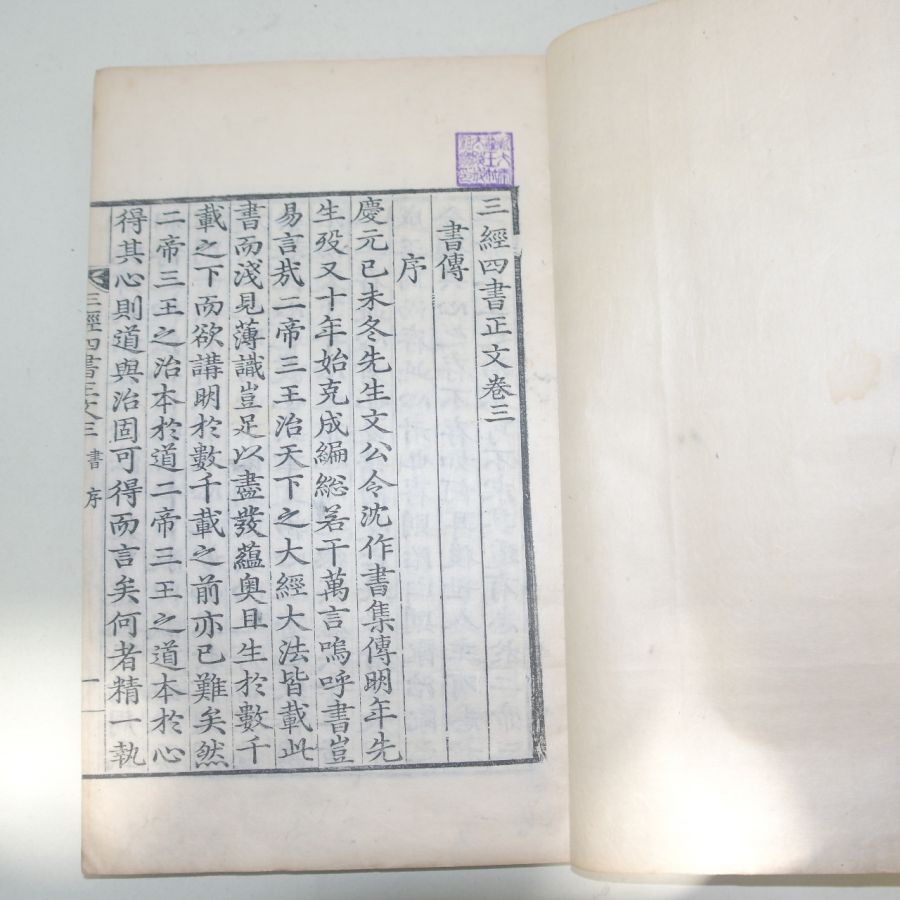 三經四書正文卷三
書傳
序
慶元已未冬先生文公令沈作書集傳明年先
生歿又十年始克成編総若干萬言嗚呼書豈
易言㢤二帝三王治天下之大經大法皆載此
書而淺見薄識豈足以盡發蘊奧且生於數千
載之下而欲講明於數千載之前亦已難矣然
二帝三王之治本於道二帝三王之道本於心
得其心則道與治固可得而言矣何者精一執
三經四書正文三 書 序 一